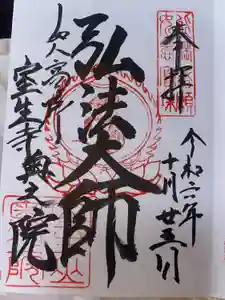 奉拝
令和二年
十月廿三日
弘法大師
女人高野
室生寺奥之院